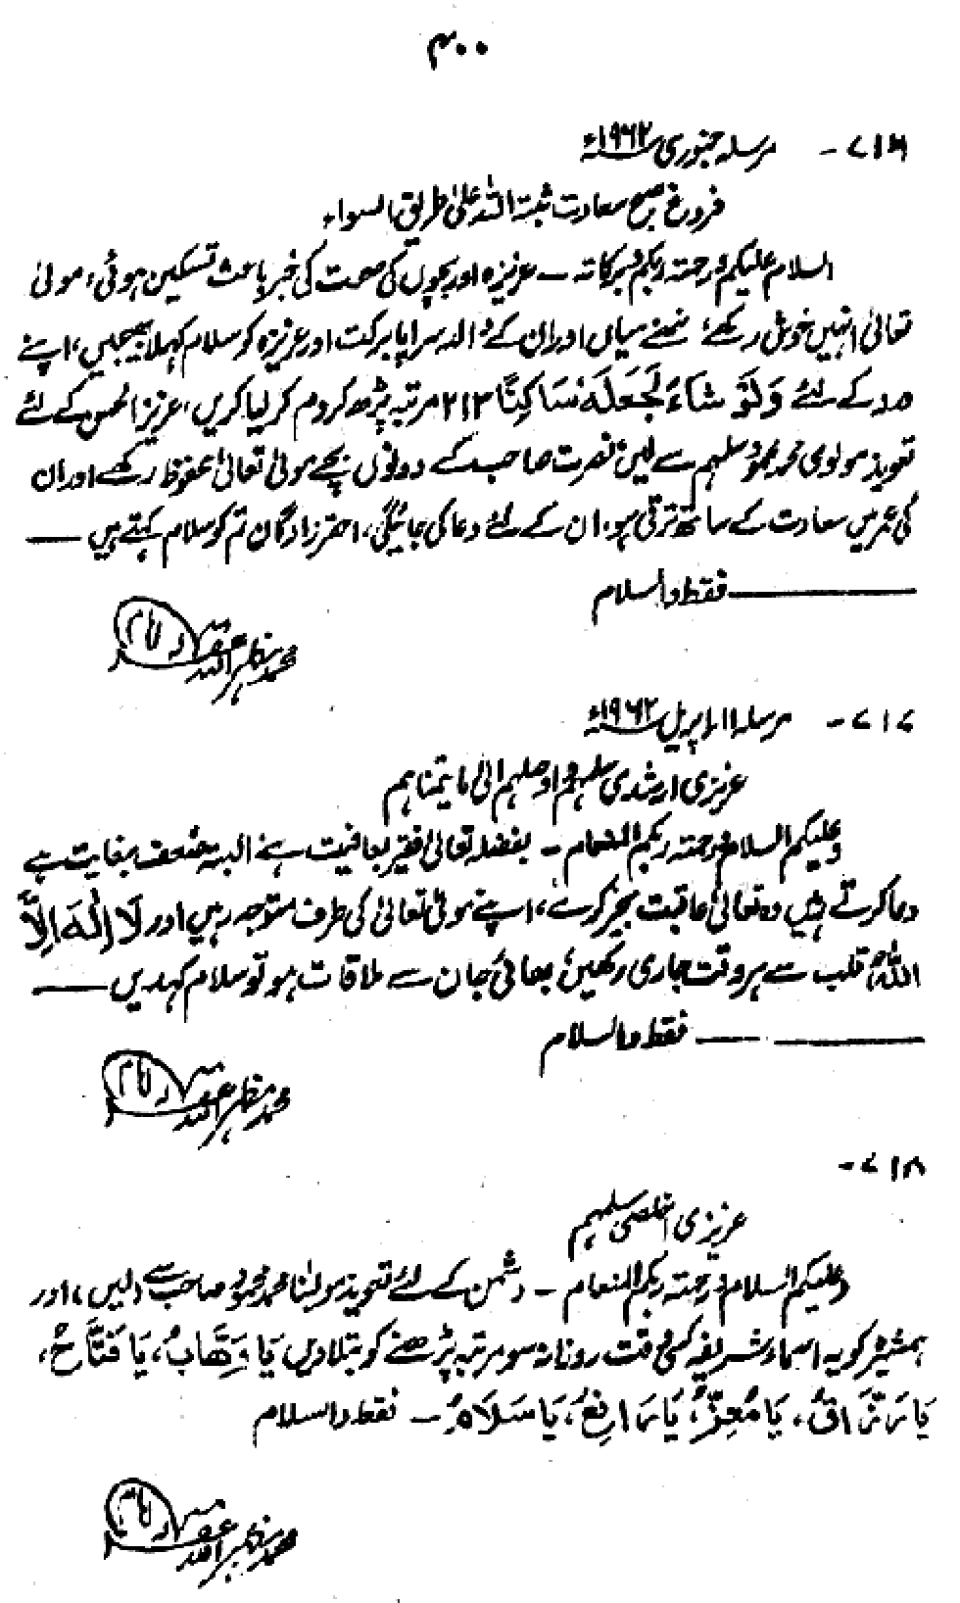 ۴۰۰
۷۱۶- مرسلہ جنوری ۱۹۶۲ء
فروغ صبح سعادت ثبتہ اللہ علیٰ طریق السواء
السلام علیکم ورحمتہ ربکم وبرکاتہ ـ عزیزہ اور بچوں کی صحت کی خبر باعث تسکین ہوئی، مولیٰ
تعالیٰ انہیں خوش رکھے، ننھے میاں اور ان کے والد سراپا برکت اور عزیزہ کو سلام کہلا بھیجیں، اپنے
درد کے لئے وَلَوْ شَاءَ لَجَعَلَهٗ سَاكِنًا ۲۱۲ مرتبہ پڑھ کر دم کر لیا کریں، عزیز الحسن کے لئے
تعویذ مولوی محمد محمود سلہم سے لیں، نصرت صاحب کے دونوں بچے مولیٰ تعالیٰ محفوظ رکھے اور ان
کی عمر میں سعادت کے ساتھ ترقی ہو، ان کے لئے دعا کی جائیگی، احقر زادگان تم کو سلام کہتے ہیں ــــ
ــــــــ فقط والسلام
محمد مظہر اللہ غفرلہ
۷۱۷- مرسلہ ۱۱ اپریل ۱۹۶۲ء
عزیزی ارشدی سلہم واوصلہم الیٰ ما یتمناہم
وعلیکم السلام ورحمتہ ربکم المنعام ـ بفضلہ تعالیٰ فقیر بعافیت ہے، البتہ ضعف بغایت ہے
دعا کرتے رہیں وہ تعالیٰ عاقبت بخیر کرے، اپنے مولیٰ تعالیٰ کی طرف متوجہ رہیں اور لَا اِلٰهَ اِلَّا
اللہُ قلب سے ہر وقت جاری رکھیں، بھائی جان سے ملاقات ہو تو سلام کہدیں ــــ
ــــــــ فقط والسلام
محمد مظہر اللہ غفرلہ
۷۱۸-
عزیزی اخلصی سلہم
وعلیکم السلام ورحمتہ ربکم المنعام ـ دشمن کے لئے تعویذ مولینا محمد محمود صاحب سے لیں، اور
ہمشیرہ کو یہ اسماء شریفہ کسی وقت روزانہ سو مرتبہ پڑھنے کو بتلا دیں یَا وَهَّابُ، یَا فَتَّاحُ،
یَا رَزَّاقُ، یَا مُعِزُّ، یَا رَافِعُ، یَا سَلَامُ ـ فقط والسلام
محمد مظہر اللہ غفرلہ